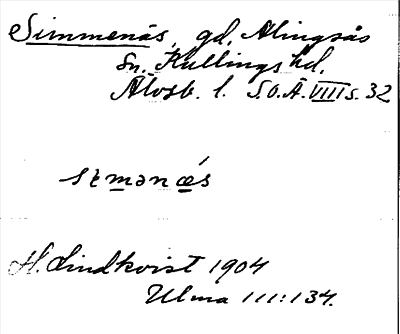 Simmenås, gd, Alingsås
Sn. Kullings hd.
Älvsb. l. S.O.Ä. VIII s. 32
H. Lindkvist 1904
Ulma 111:134.